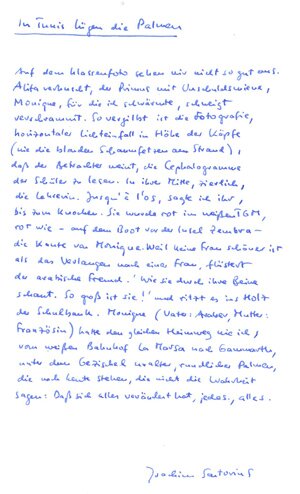 In Tunis lügen die Palmen
Auf dem Klassenfoto sehen wir nicht so gut aus.
Alita verhuscht, der Primus mit Unschuldsmiene,
Monique, für die ich schwärmte, schweigt
verschwommt. So vergilbt ist die Fotografie,
horizontaler Lichteinfall in Höhe der Köpfe
(wie die blonden Schaumfetzen am Strand),
daß der Betrachter meint, die Cephalogramme
der Schüler zu lesen. In ihrer Mitte, zierlich,
die Lehrerin. Jusqu'à l'os, sagte ich ihr,
bis zum Knochen. Sie wurde rot im weißen MGM,
rot wie – auf dem Boot vor der Insel Zembra –
die Kante von Monique. Weil keine Frau schöner ist
als das Verlangen nach einer Frau, flüstert
der arabische Freund. 'Wie sie durch ihre Beine
schaut. So groß ist sie!' und ritzt es ins Holz
der Schulbank. Monique (Vater: Araber, Mutter:
Französin) hatte den gleichen Heimweg wie ich,
vom weißen Bahnhof La Marsa nach Gammarth,
unter dem Gezischel uralter, rundlicher Palmen,
die noch heute stehen, die nicht die Wahrheit
sagen: Daß sich alles verändert hat, jedes, alles.
Joachim Sartorius